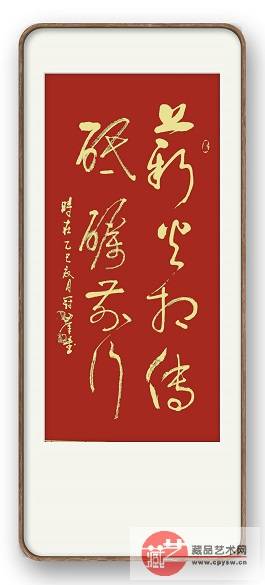 薪火相传
砥砺前行
時在乙巳
藏艺
藏品艺术网
www.cpysw.cn